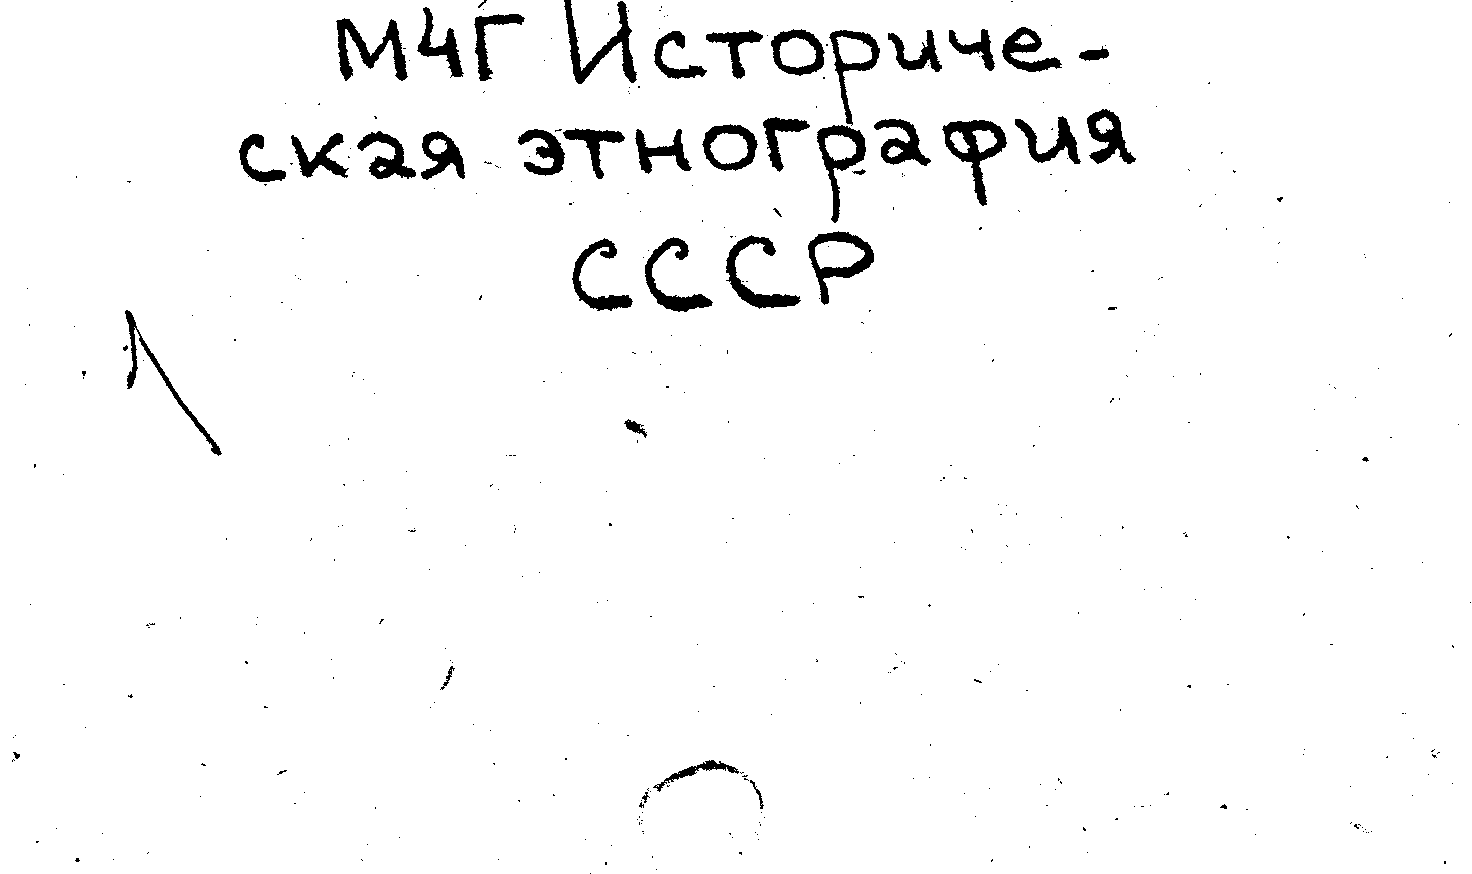 М4Г Историче-
ская этнография
СССР